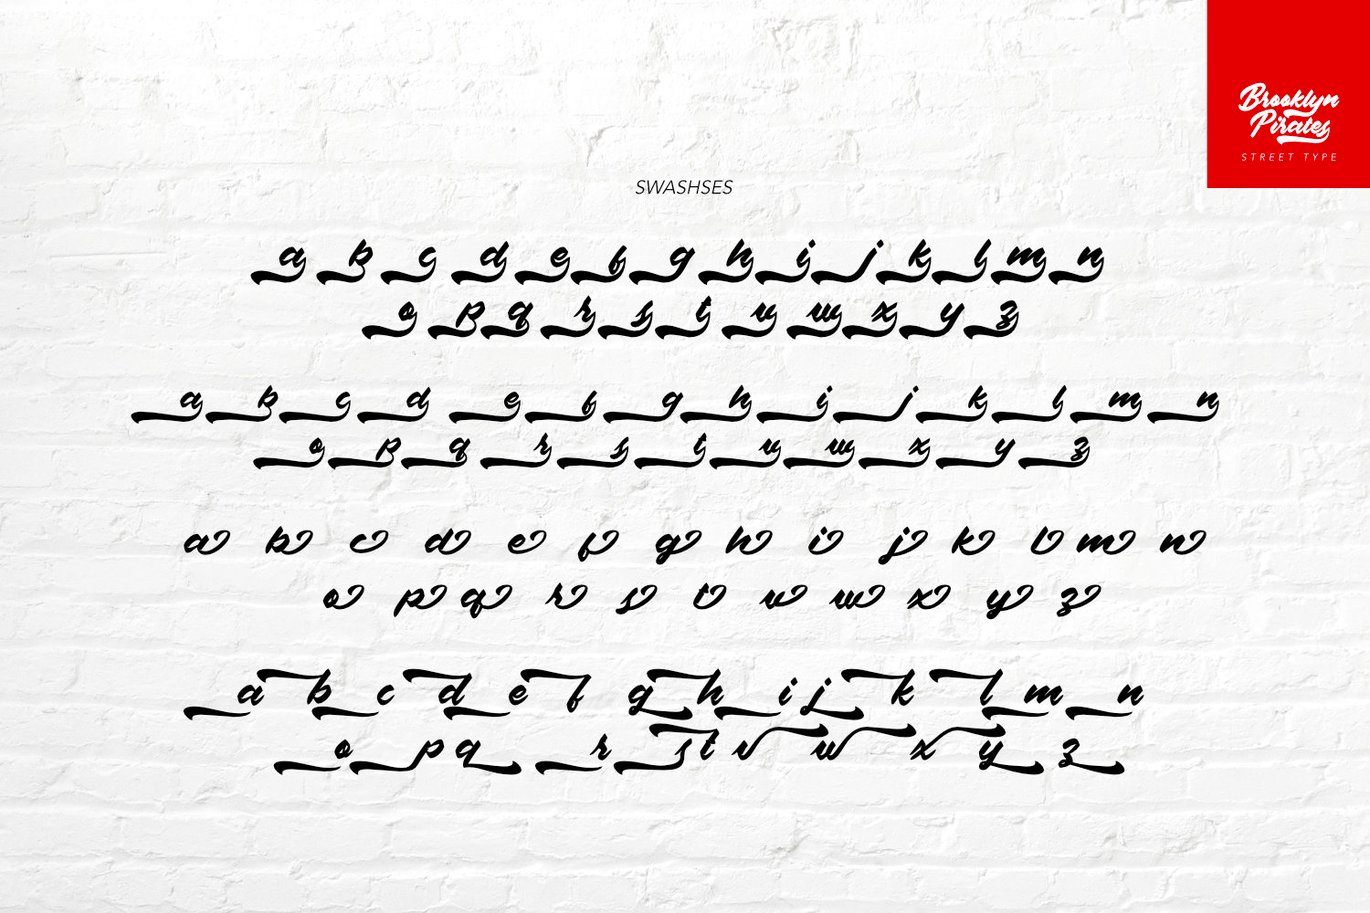 Brooklyn
Pirates
STREET TYPE
SWASHSES
a b c d e f g h i j k l m n
o p q r s t u w x y z
a b c d e f g h i j k l m n
o p q r s t u w x y z
a b c d e f g h i j k l m n
o p q r s t v w x y z
a b c d e f g h i j k l m n
o p q r s t v w x y z